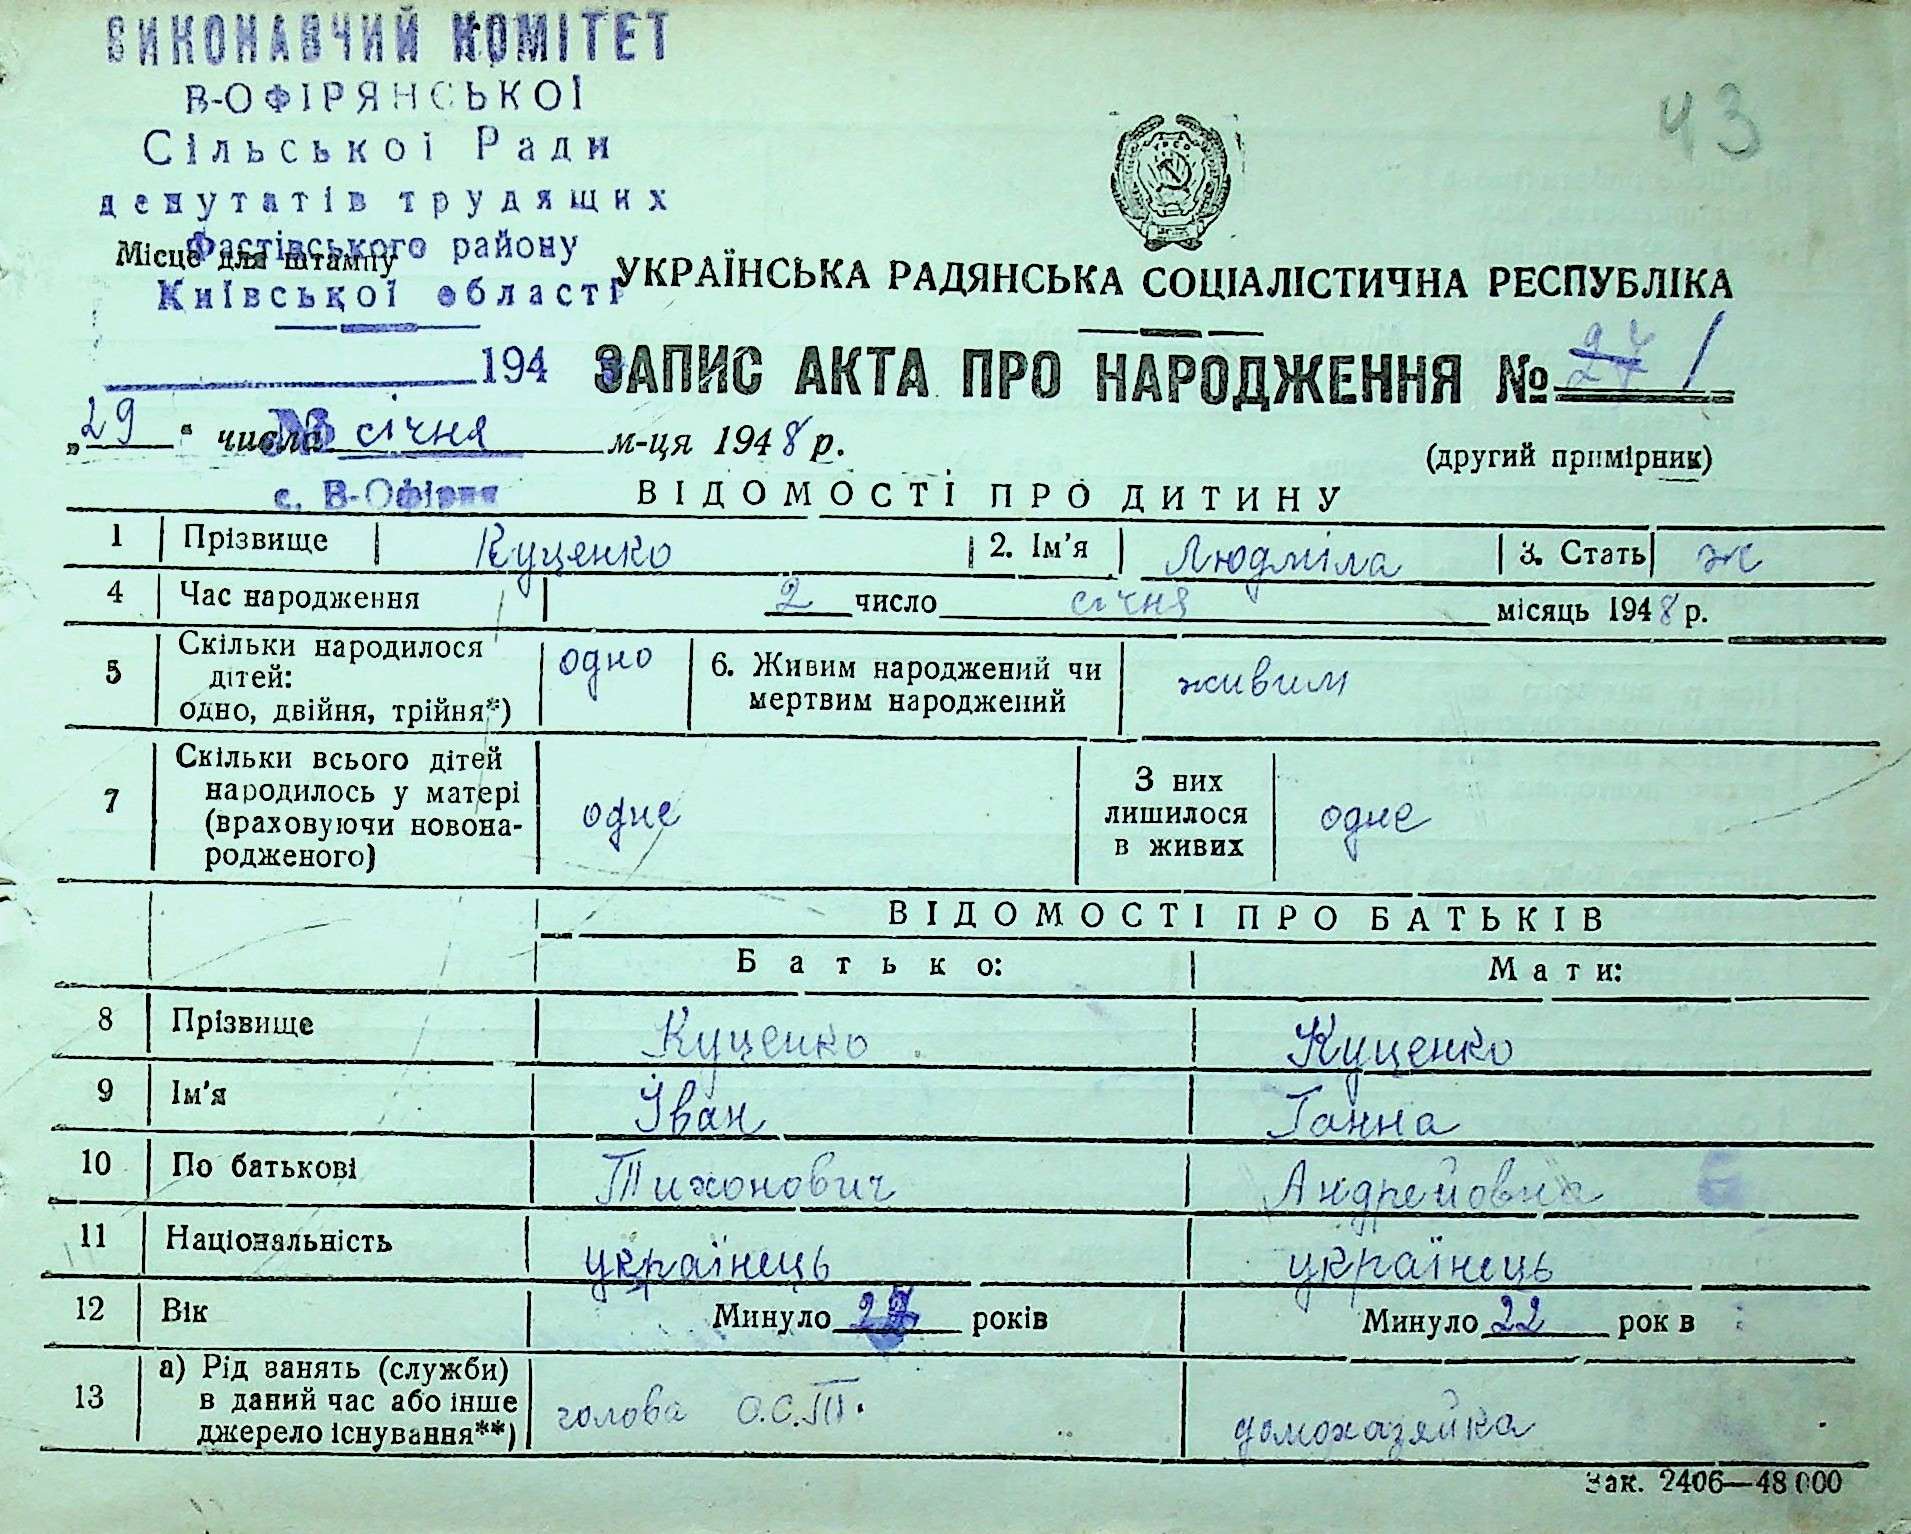 ВИКОНАВЧИЙ КОМІТЕТ
В-ОФІРЯНСЬКОІ
Сільської Ради
депутатів трудящих
Фастівського району
Місце для штампу
Київської області
43
УРСР
УКРАЇНСЬКА РАДЯНСЬКА СОЦІАЛІСТИЧНА РЕСПУБЛІКА
194
ЗАПИС АКТА ПРО НАРОДЖЕННЯ № 1
„29“ числа січня м-ця 1948 р.
(другий примірник)
с. В-Офірня
ВІДОМОСТІ ПРО ДИТИНУ
1 Прізвище Куценко 2. Ім'я Людміла 3. Стать ж
4 Час народження 2 число січня місяць 1948 р.
5 Скільки народилося дітей: одно, двійня, трійня*) одно 6. Живим народжений чи мертвим народжений живим
7 Скільки всього дітей народилось у матері (враховуючи новона-родженого) одне З них лишилося в живих одне
ВІДОМОСТІ ПРО БАТЬКІВ
Батько: Мати:
8 Прізвище Куценко Куценко
9 Ім'я Іван Ганна
10 По батькові Тихонович Андрейовна
11 Національність українець українець
12 Вік Минуло років Минуло 22 рок в
13 а) Рід занять (служби) в даний час або інше джерело існування**) голова О.С.Т. домохазяйка
Зак. 2406—48000